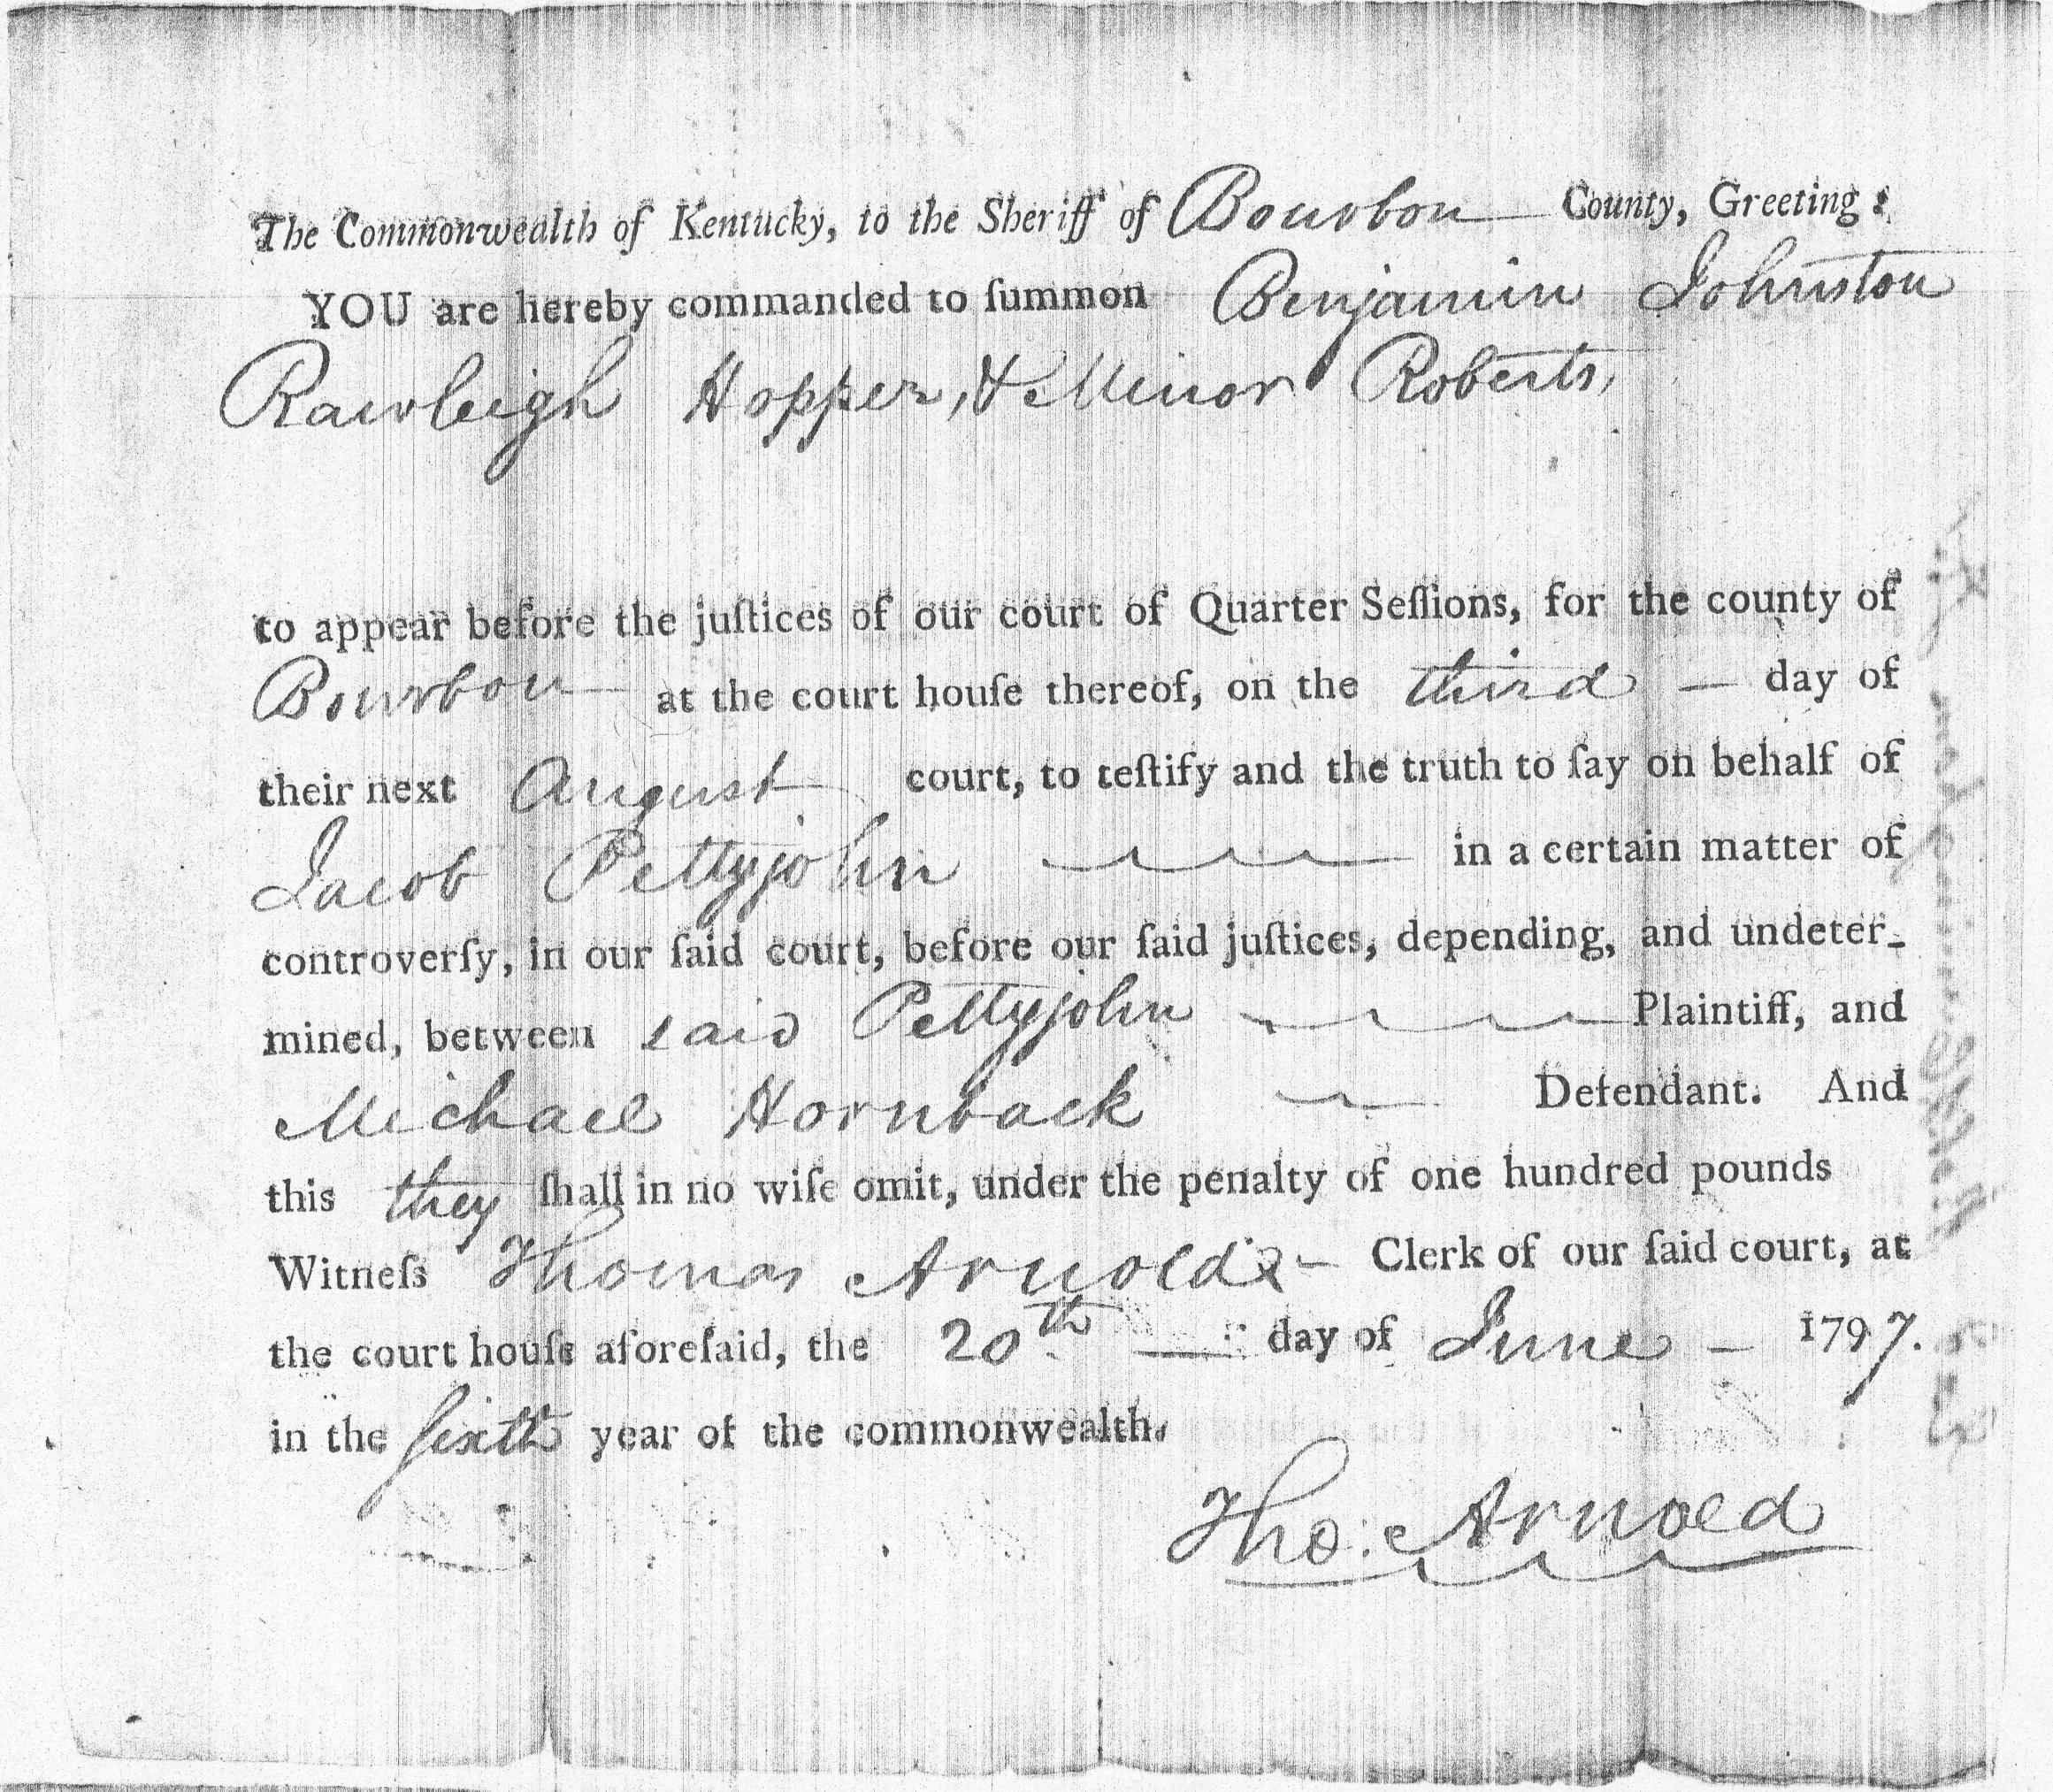 The Commonwealth of Kentucky, to the Sheriff of Bourbon County, Greeting:
YOU are hereby commanded to ſummon Benjamin Johnston
Rawleigh Hopper, & Minor Roberts,
to appear before the juſtices of our court of Quarter Seſſions, for the county of
Bourbon at the court houſe thereof, on the third — day of
their next August court, to teſtify and the truth to ſay on behalf of
Jacob Pettyjohn in a certain matter of
controverſy, in our ſaid court, before our ſaid juſtices, depending, and undeter-
mined, between said Pettyjohn Plaintiff, and
Michael Hornback Defendant. And
this they ſhall in no wiſe omit, under the penalty of one hundred pounds
Witneſs Thomas Arnold Clerk of our ſaid court, at
the court houſe aforeſaid, the 20th — day of June — 1797.
in the ſixth year of the commonwealth.
Tho: Arnold